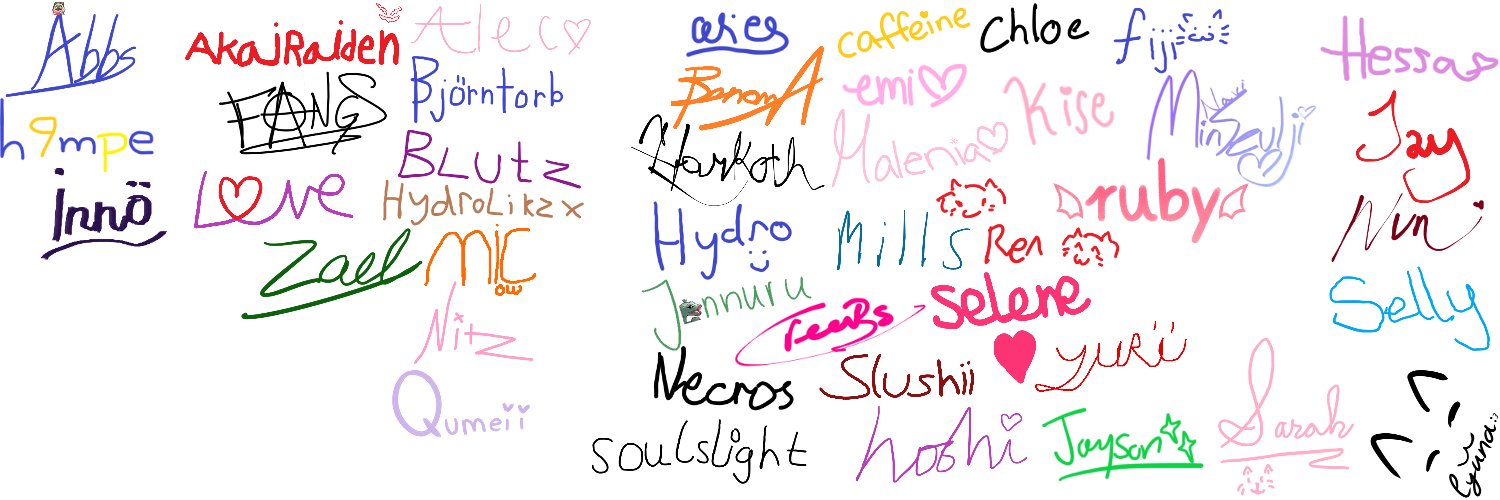 Abbs
AkaiRaiden
Alec
aries
caffeine
Chloe
fiji
Hessa
h9mpe
FANGS
Björntorb
BananA
emi
Kise
Minseulji
Jay
innö
LOVE
BLutz
Harkoth
Malenia
ruby
Nini
HydroLikzx
Zael
MiC
ow
Hydro
Mills
Ren
Selly
Nitz
Jennuru
FeeBs
selene
Necros
Slushii
yuRii
Qumeii
soulslight
hoshi
Jayson
Sarah
yuna